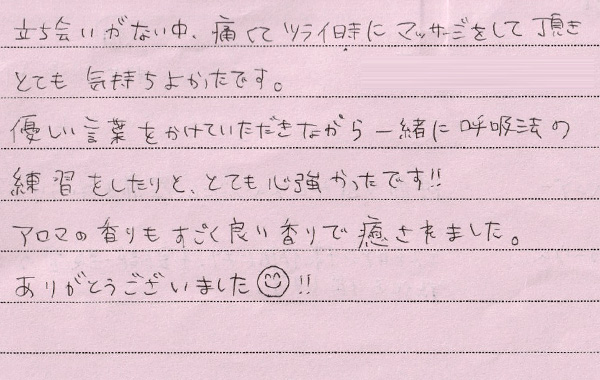 立ち会いがない中、痛くてツライ時にマッサージをして頂き
とても気持ちよかったです。
優しい言葉をかけていただきながら一緒に呼吸法の
練習をしたりと、とても心強かったです!!
アロマの香りもすごく良い香りで癒されました。
ありがとうございました😊!!